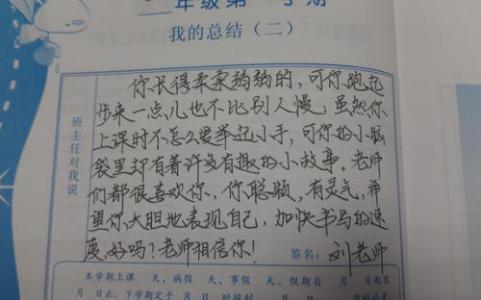 年级第 学期
我的总结（二）
班主任对我说
你长得柔柔弱弱的，可你跑起
步来一点儿也不比别人慢；虽然你
上课时不怎么爱举起小手，可你的小脑
袋里却有着许多有趣的小故事。老师
们都很喜欢你，你聪颖，有灵气，希
望你大胆地表现自己，加快书写的速
度，好吗？老师相信你！
签名：刘老师
本学期上课 天、病假 天、事假 天、假期自 月 日起至
月 日止、下学期定于 月 日